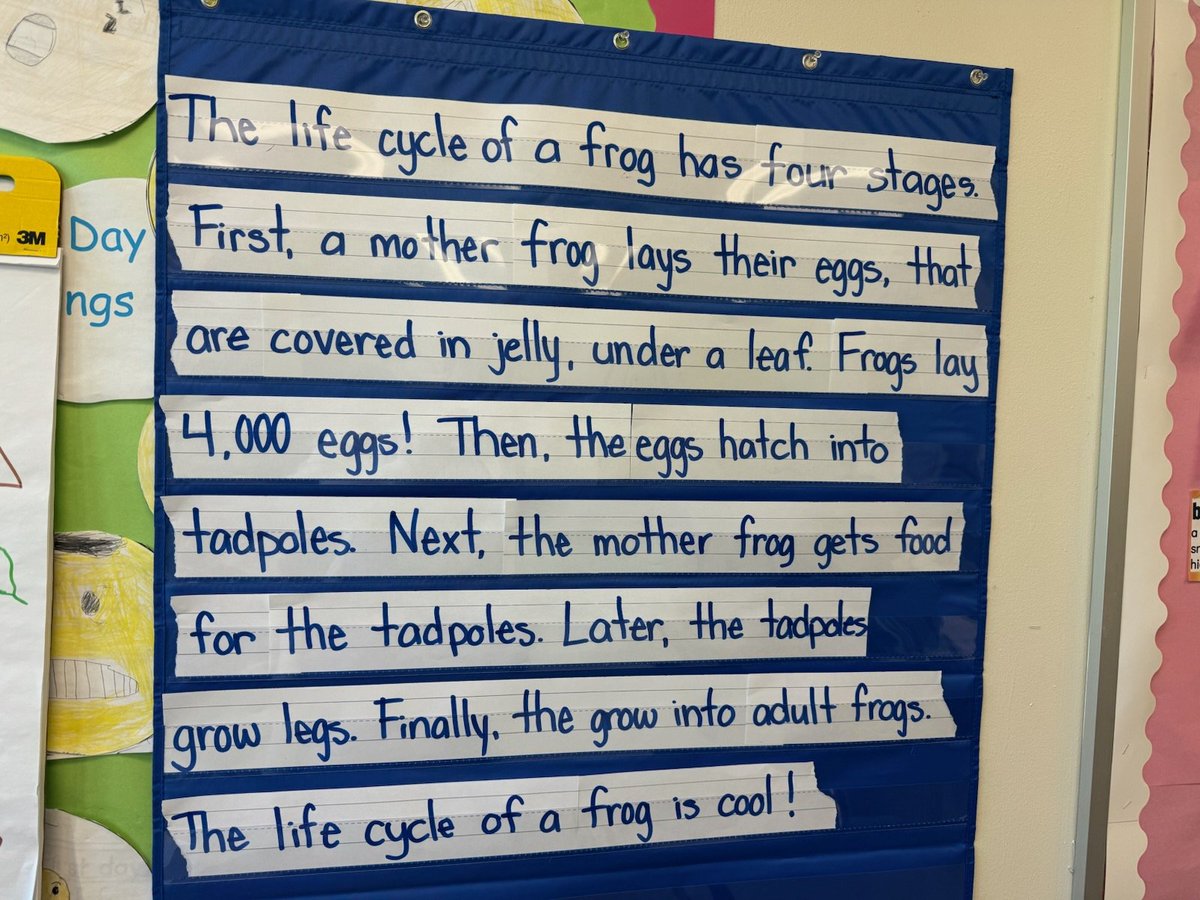 The life cycle of a frog has four stages.
First, a mother frog lays their eggs, that
are covered in jelly, under a leaf. Frogs lay
4,000 eggs! Then, the eggs hatch into
tadpoles. Next, the mother frog gets food
for the tadpoles. Later, the tadpoles
grow legs. Finally, the grow into adult frogs.
The life cycle of a frog is cool!
3M
Day
ngs